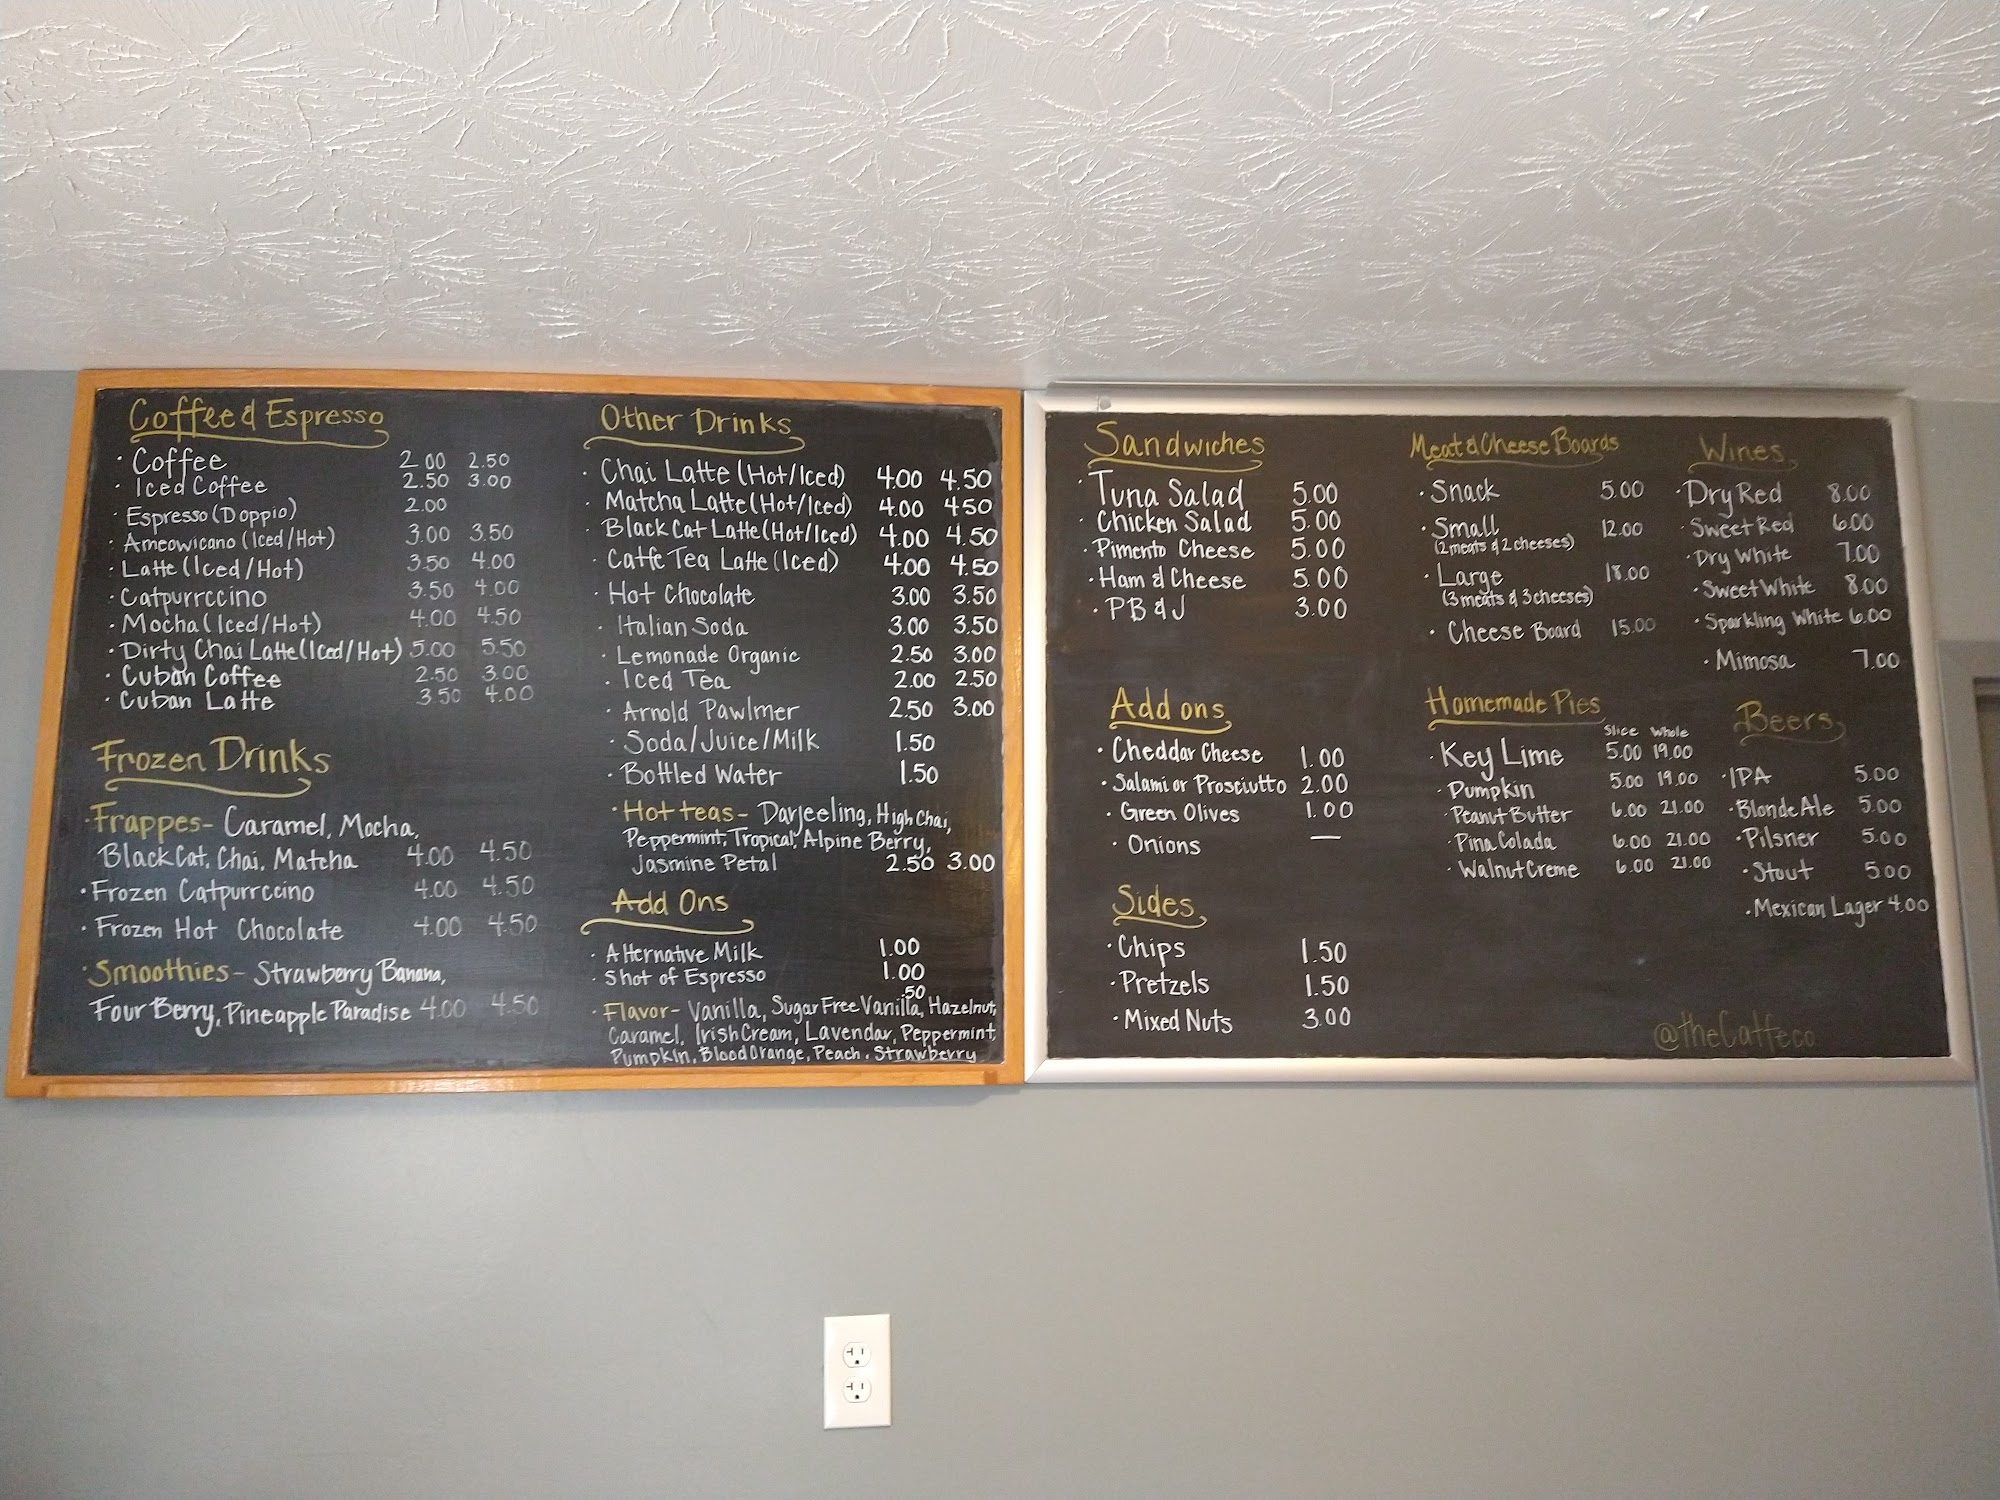 Coffee & Espresso
· Coffee 2.00 2.50
· Iced Coffee 2.50 3.00
· Espresso (Doppio) 2.00
· Ameowicano (Iced/Hot) 3.00 3.50
· Latte (Iced/Hot) 3.50 4.00
· Catpurrccino 3.50 4.00
· Mocha (Iced/Hot) 4.00 4.50
· Dirty Chai Latte (Iced/Hot) 5.00 5.50
· Cuban Coffee 2.50 3.00
· Cuban Latte 3.50 4.00
Frozen Drinks
· Frappes - Caramel, Mocha,
Black Cat, Chai, Matcha 4.00 4.50
· Frozen Catpurrccino 4.00 4.50
· Frozen Hot Chocolate 4.00 4.50
· Smoothies - Strawberry Banana,
Four Berry, Pineapple Paradise 4.00 4.50
Other Drinks
· Chai Latte (Hot/Iced) 4.00 4.50
· Matcha Latte (Hot/Iced) 4.00 4.50
· Black Cat Latte (Hot/Iced) 4.00 4.50
· Catfe Tea Latte (Iced) 4.00 4.50
· Hot Chocolate 3.00 3.50
· Italian Soda 3.00 3.50
· Lemonade Organic 2.50 3.00
· Iced Tea 2.00 2.50
· Arnold Pawlmer 2.50 3.00
· Soda/Juice/Milk 1.50
· Bottled Water 1.50
· Hot teas - Darjeeling, High Chai,
Peppermint, Tropical, Alpine Berry,
Jasmine Petal 2.50 3.00
Add Ons
· Alternative Milk 1.00
· Shot of Espresso 1.00
.50
· Flavor - Vanilla, Sugar Free Vanilla, Hazelnut,
Caramel, Irish Cream, Lavendar, Peppermint,
Pumpkin, Blood Orange, Peach, Strawberry
Sandwiches
· Tuna Salad 5.00
· Chicken Salad 5.00
· Pimento Cheese 5.00
· Ham & Cheese 5.00
· PB & J 3.00
Add ons
· Cheddar Cheese 1.00
· Salami or Prosciutto 2.00
· Green Olives 1.00
· Onions —
Sides
· Chips 1.50
· Pretzels 1.50
· Mixed Nuts 3.00
Meat & Cheese Boards
· Snack 5.00
· Small 12.00
(2 meats & 2 cheeses)
· Large 18.00
(3 meats & 3 cheeses)
· Cheese Board 15.00
Homemade Pies
Slice Whole
· Key Lime 5.00 19.00
· Pumpkin 5.00 19.00
· Peanut Butter 6.00 21.00
· Pina Colada 6.00 21.00
· Walnut Creme 6.00 21.00
Wines
· Dry Red 8.00
· Sweet Red 6.00
· Dry White 7.00
· Sweet White 8.00
· Sparkling White 6.00
· Mimosa 7.00
Beers
· IPA 5.00
· Blonde Ale 5.00
· Pilsner 5.00
· Stout 5.00
· Mexican Lager 4.00
@theCatfeco